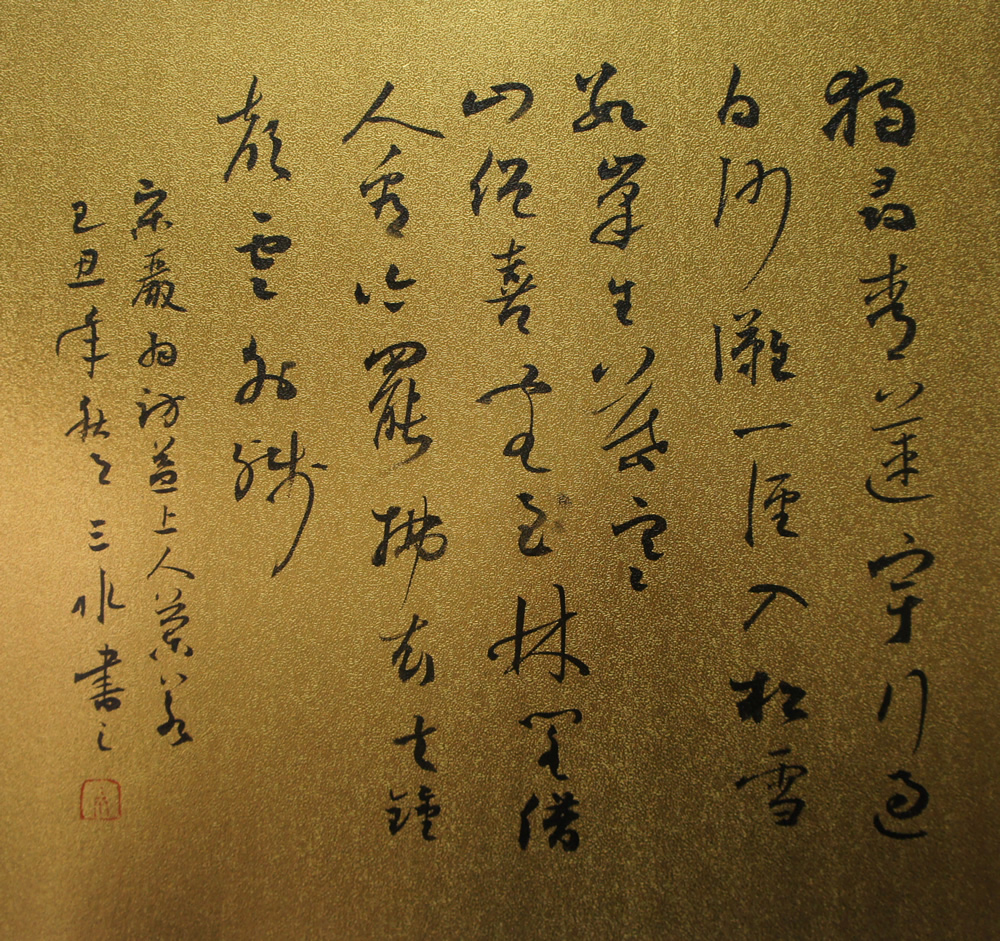 獨尋青蓮宇行過
白沙灘一徑入松雪
數峯生暮寒
山僧喜客至林閣借
人看吟罷拂衣去鐘
聲雲外殘
宋嚴羽訪益上人蘭若
己丑年秋三水書之